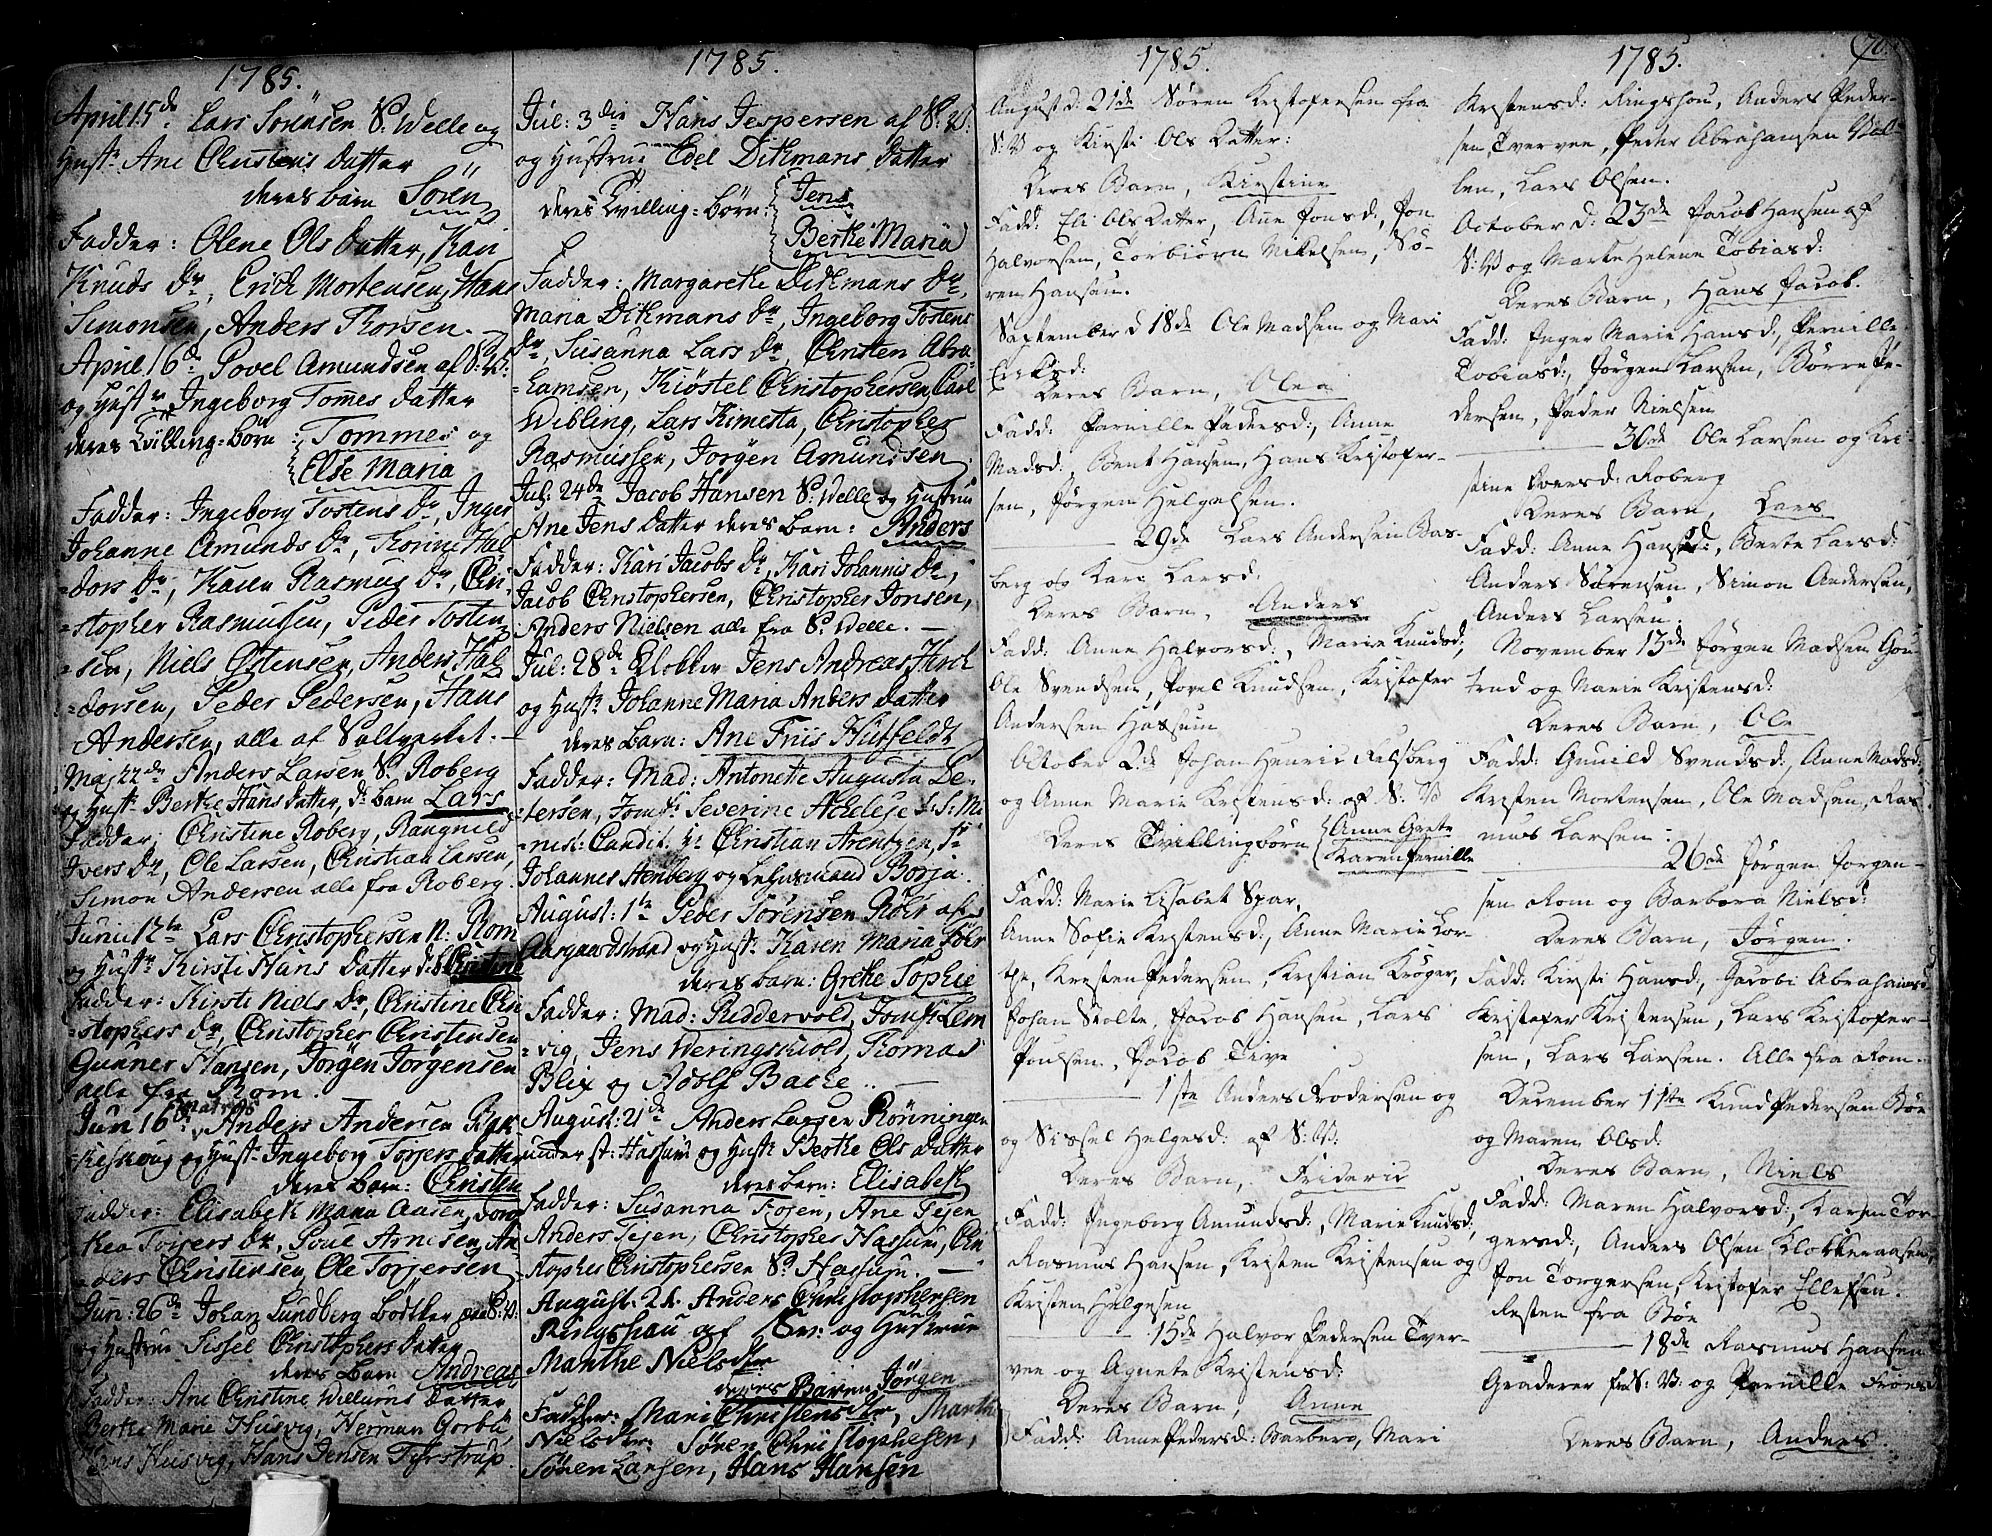 1785.
April 15de Lars Sörensen S: Welle og
Hust: Ane Christens datter
deres barn Sören
Fadder: Olene Ols datter, Kari
Knuds Dr, Erich Mortensen, Hans
Simonsen, Anders Thorsen.
April 16de Povel Amundsen af S: W:
og Hustr Ingeborg Tomes datter
deres Tvilling-börn: Tommes og
Else Maria
Fadder: Ingeborg Tostens Dr, Inger
Johanne Amunds Dr, Thorine Hal
-dors Dr, Karen Rasmus Dr, Chri
-stopher Rasmussen, Peder Tosten
-sen, Niels Östensen, Anders Hal
-dorsen, Peder Pedersen, Hans
Andersen, alle af Saltverket.
Maj 22de Anders Larsen S: Roberg
og Hust: Berthe Hans datter, d: barn Lars
Fadder: Christine Roberg, Rangnild
Ivers Dr, Ole Larsen, Christian Larsen,
Simon Andersen alle fra Roberg.
Junii 12te Lars Christophersen N: Rom
og Hustr Kirsti Hans datter d: b: Christine
Fadder: Kirsti Niels Dr, Christine Chri
-stophers Dr, Christopher Christensen
Gunner Hansen, Jörgen Jörgensen
alle fra Rom.
Jun 16de Matros Anders Andersen
og Hust: Ingeborg Torgers datter
deres barn: Christen
Fadder: Elisabeth Maria Aasen, Doro
thea Torgers Dr, Poul Arnesen, An
-ders Christensen, Ole Torjersen
Jun: 26de Johan Lundberg Bödtker S: W:
og Hustrue Sissel Christophers datter
deres barn Andreas
Fadder: Ane Christine Willums datter
Berthe Marie Husvig, Herman Gorbu,
Husvig, Hans Jensen Tyrstrup.

1785.
Jul: 3die Hans Jespersen af S: W:
og Hustrue Edel Ditmans datter
deres Tvilling-börn: Jens
Berthe Maria
Fadder: Margarethe Ditmans Dr,
Maria Ditmans Dr, Ingeborg Tostens
Dr, Susanna Lars Dr, Christen Abra-
-hamsen, Kiöstel Christophersen, Carl
Wibling, Lars Kimesta, Christopher
Rasmussen, Jörgen Amundsen
Jul: 24de Jacob Hansen S: Welle og Hustrue
Ane Jens datter deres barn: Anders
Fadder: Kari Jacobs Dr, Kari Johannis Dr,
Jacob Christophersen, Christopher Jonsen,
Anders Nielsen alle fra S: Welle.
Jul: 28de Klokker Jens Andreas Hirch
og Hust: Johanne Maria Anders datter
deres barn: Ane Friis Hutfeldt
Fadder: Mad: Antonette Augusta Pe-
-tersen, Jomfr: Severine Adeleje S.S: Mi
-nist: Candit: Hr Christian Arentzen, Sr
Johannes Stenberg og Lehnsmand Borja.
August: 1te Peder Törensen Röhr af
Aargaardstrand og Hust: Karen Maria Föhr
deres barn: Grethe Sophie
Fadder: Mad: Riddervold, Jomfr: Lem
-vig, Jens Weringskiold, Thomas
Blix og Adolf Bache.
August: 21de Anders Larsen Rönningen
under st: Hassum og Hust: Berthe Ols datter
deres barn: Elisabeth
Fadder: Susanna Fosen, Ane Tejen
Anders Tejen, Christopher Hassum, Chri
stopher Christophersen S: Hassum.
August: 21. Anders Christophersen
Ringshau og Hustrue
Marthe Nielsdter
deres Baren Jörgen
Fadder: Mari Christensdter, Marthe
Nielsdter: Sören Christophesen,
Sören Larsen, Hans Hansen

1785.
August d: 21de Sören Kristofersen fra
S: V og Kirsti Ols Datter:
Deres Barn, Kirstine
Fadd: Eli Ols Datter, Anne Jonsd:, Jon
Halvorsen, Torbiörn Mikelsen, Sö-
ren Hansen.
September d 18de Ole Madsen og Mari
Eriksd:
Deres Barn, Olea
Fadd: Pernille Pedersd:, Anne
Madsd:, Bent Hansen, Hans Kristofer-
sen, Jörgen Helgesen.
29de Lars Andersen Bas-
berg og Kari Larsd:
Deres Barn, Anders
Fadd: Anne Halvorsd:, Marie Knudsd;
Ole Svendsen, Povel Knudsen, Kristofer
Andersen Hassum
October 2de Johan Henric Felsberg
og Anne Marie Kristensd: af S: V
Deres Tvillingbörn Anne Grete
Karen Pernille
Fadd: Marie Lisabet Spar,
Anne Sofie Kristensd:, Anne Marie Lor-
, Kresten Pedersen, Kristian Kröger,
Johan Stolte, Jacob Hansen, Lars
Poulsen, Jacob Tive
1ste Anders Frodersen og
og Sissel Helgesd: af S: V:
Deres Barn, Frideric
Fadd: Ingeborg Amundsd:, Marie Knudsd;
Rasmus Hansen, Kristen Kristensen og
Kristen Helgesen
15de Halvor Pedersen Tver-
vee og Agnete Kristensd:
Deres Barn, Anne
Fadd: Anne Pedersd: Barbero, Mari

1785. 70.
Kristensd: Ringshou, Anders Peder-
sen, Tvervee, Peder Abrahamsen Vel-
len, Lars Olsen.
October d: 23de Jacob Hansen af
S: V og Marte Helene Tobiasd:
Deres Barn, Hans Jacob.
Fadd: Inger Marie Hansd:, Pernille
Tobiasd:, Jörgen Larsen, Börre Pe-
dersen, Peder Nielsen
30de Ole Larsen og Kri-
stine Iversd: Roberg
Deres Barn, Lars
Fadd: Anne Hansd:, Berte Larsd:
Anders Sörensen, Simon Andersen,
Anders Larsen.
November 13de Jörgen Madsen Gou-
trud og Marie Kristensd:
Deres Barn, Ole
Fadd: Gunild Svendsd:, Anne Madsd;
Kristen Mortensen, Ole Madsen, Ras
mus Larsen
26de Jörgen Jorgen-
sen Rom og Barbara Nielsd:
Deres Barn, Jörgen.
Fadd: Kirsti Hansd:, Jacobi Abrahamsd
Kristofer Kristensen, Lars Kristofer-
sen, Lars Larsen. Alle fra Rom.
December 11te Knud Pedersen Böe
og Maren Olsd:
Deres Barn, Niels
Fadd: Maren Halvorsd:, Karen Tor-
gersd:, Anders Olsen Klokkeraasen,
Jon Torgersen, Kristofer Ellefsen.
Resten fra Böe
18de Rasmus Hansen
Graderer fra S: V: og Pernille
Deres Barn, Anders.